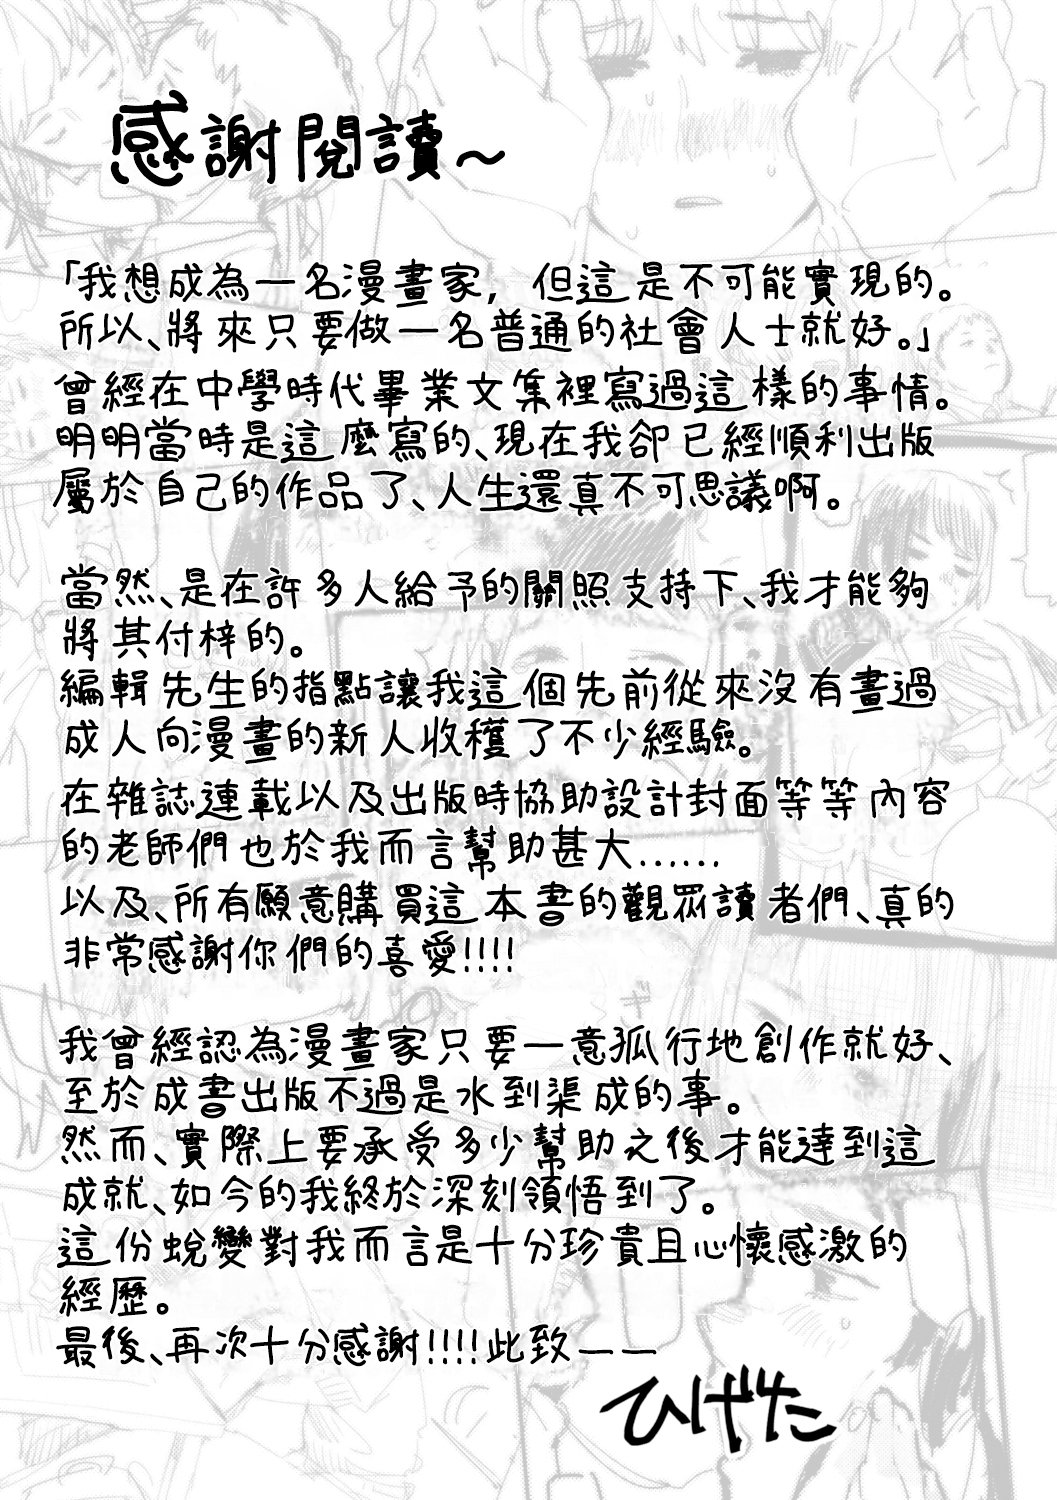 感謝閱讀～
「我想成為一名漫畫家，但這是不可能實現的。
所以、將來只要做一名普通的社會人士就好。」
曾經在中學時代畢業文集裡寫過這樣的事情。
明明當時是這麼寫的、現在我卻已經順利出版
屬於自己的作品了、人生還真不可思議啊。
當然、是在許多人給予的關照支持下、我才能夠
將其付梓的。
編輯先生的指點讓我這個先前從來沒有畫過
成人向漫畫的新人收穫了不少經驗。
在雜誌連載以及出版時協助設計封面等等內容
的老師們也於我而言幫助甚大……
以及、所有願意購買這本書的觀眾讀者們、真的
非常感謝你們的喜愛!!!!
我曾經認為漫畫家只要一意孤行地創作就好、
至於成書出版不過是水到渠成的事。
然而、實際上要承受多少幫助之後才能達到這
成就、如今的我終於深刻領悟到了。
這份蛻變對我而言是十分珍貴且心懷感激的
經歷。
最後、再次十分感謝!!!!此致——
ひげた